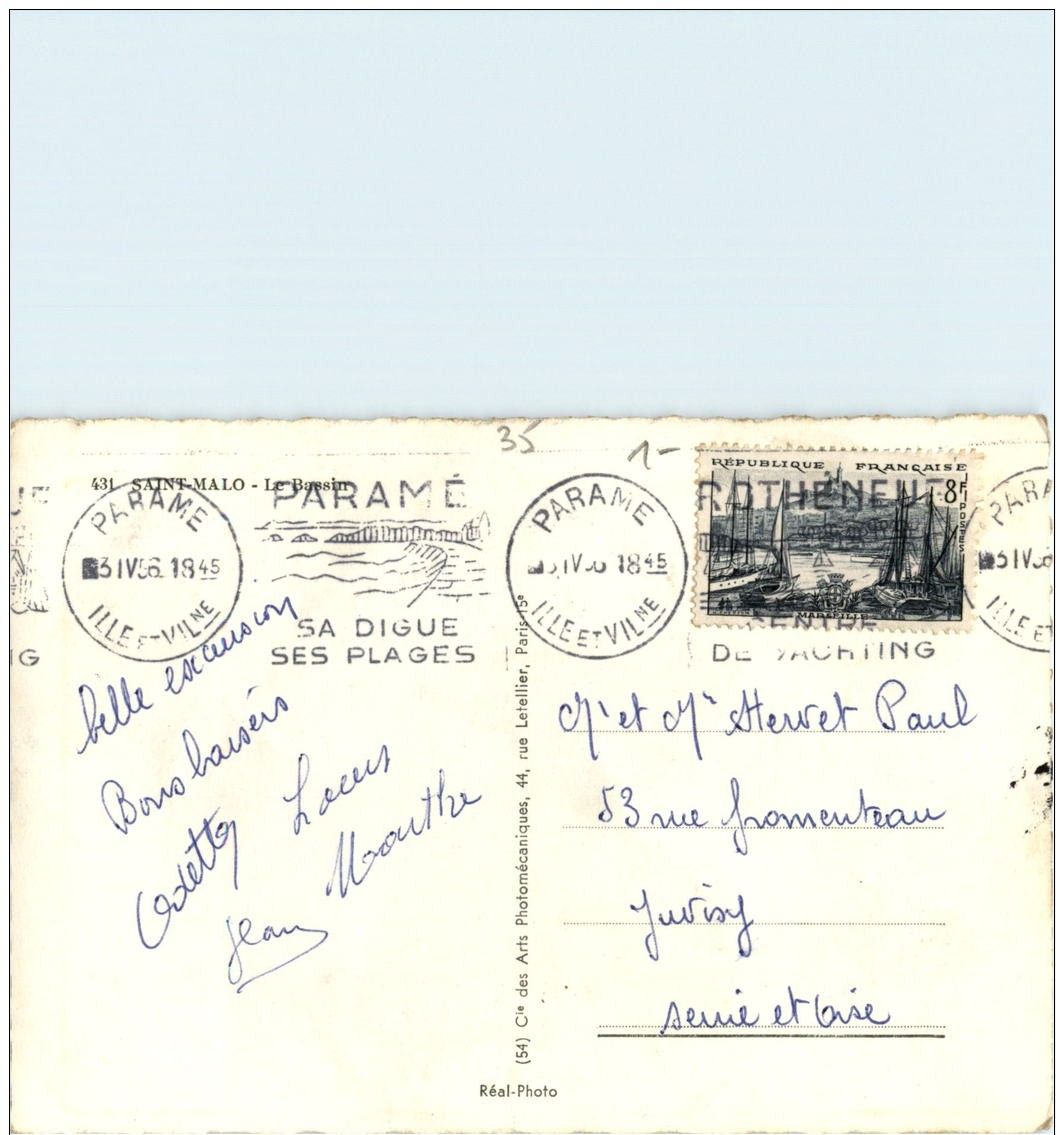 35
1-
431 SAINT-MALO - Le Bassin
PARAMÉ
ILLE ET VILNE
3 IV 56 18 45
PARAMÉ
SA DIGUE
SES PLAGES
PARAMÉ
ILLE ET VILNE
3 IV 56 18 45
ROTHÉNEUF
CENTRE
DE YACHTING
PARA
ILLE ET
NG
RÉPUBLIQUE FRANÇAISE
8F
POSTES
MARSEILLE
belle excursion
Bons baisers
Odette Louis
Jean Marthe
(54) Cie des Arts Photomécaniques, 44, rue Letellier, Paris-15e
Mr et Me Hervet Paul
53 rue fromenteau
Juvisy
seine et Oise
Réal-Photo